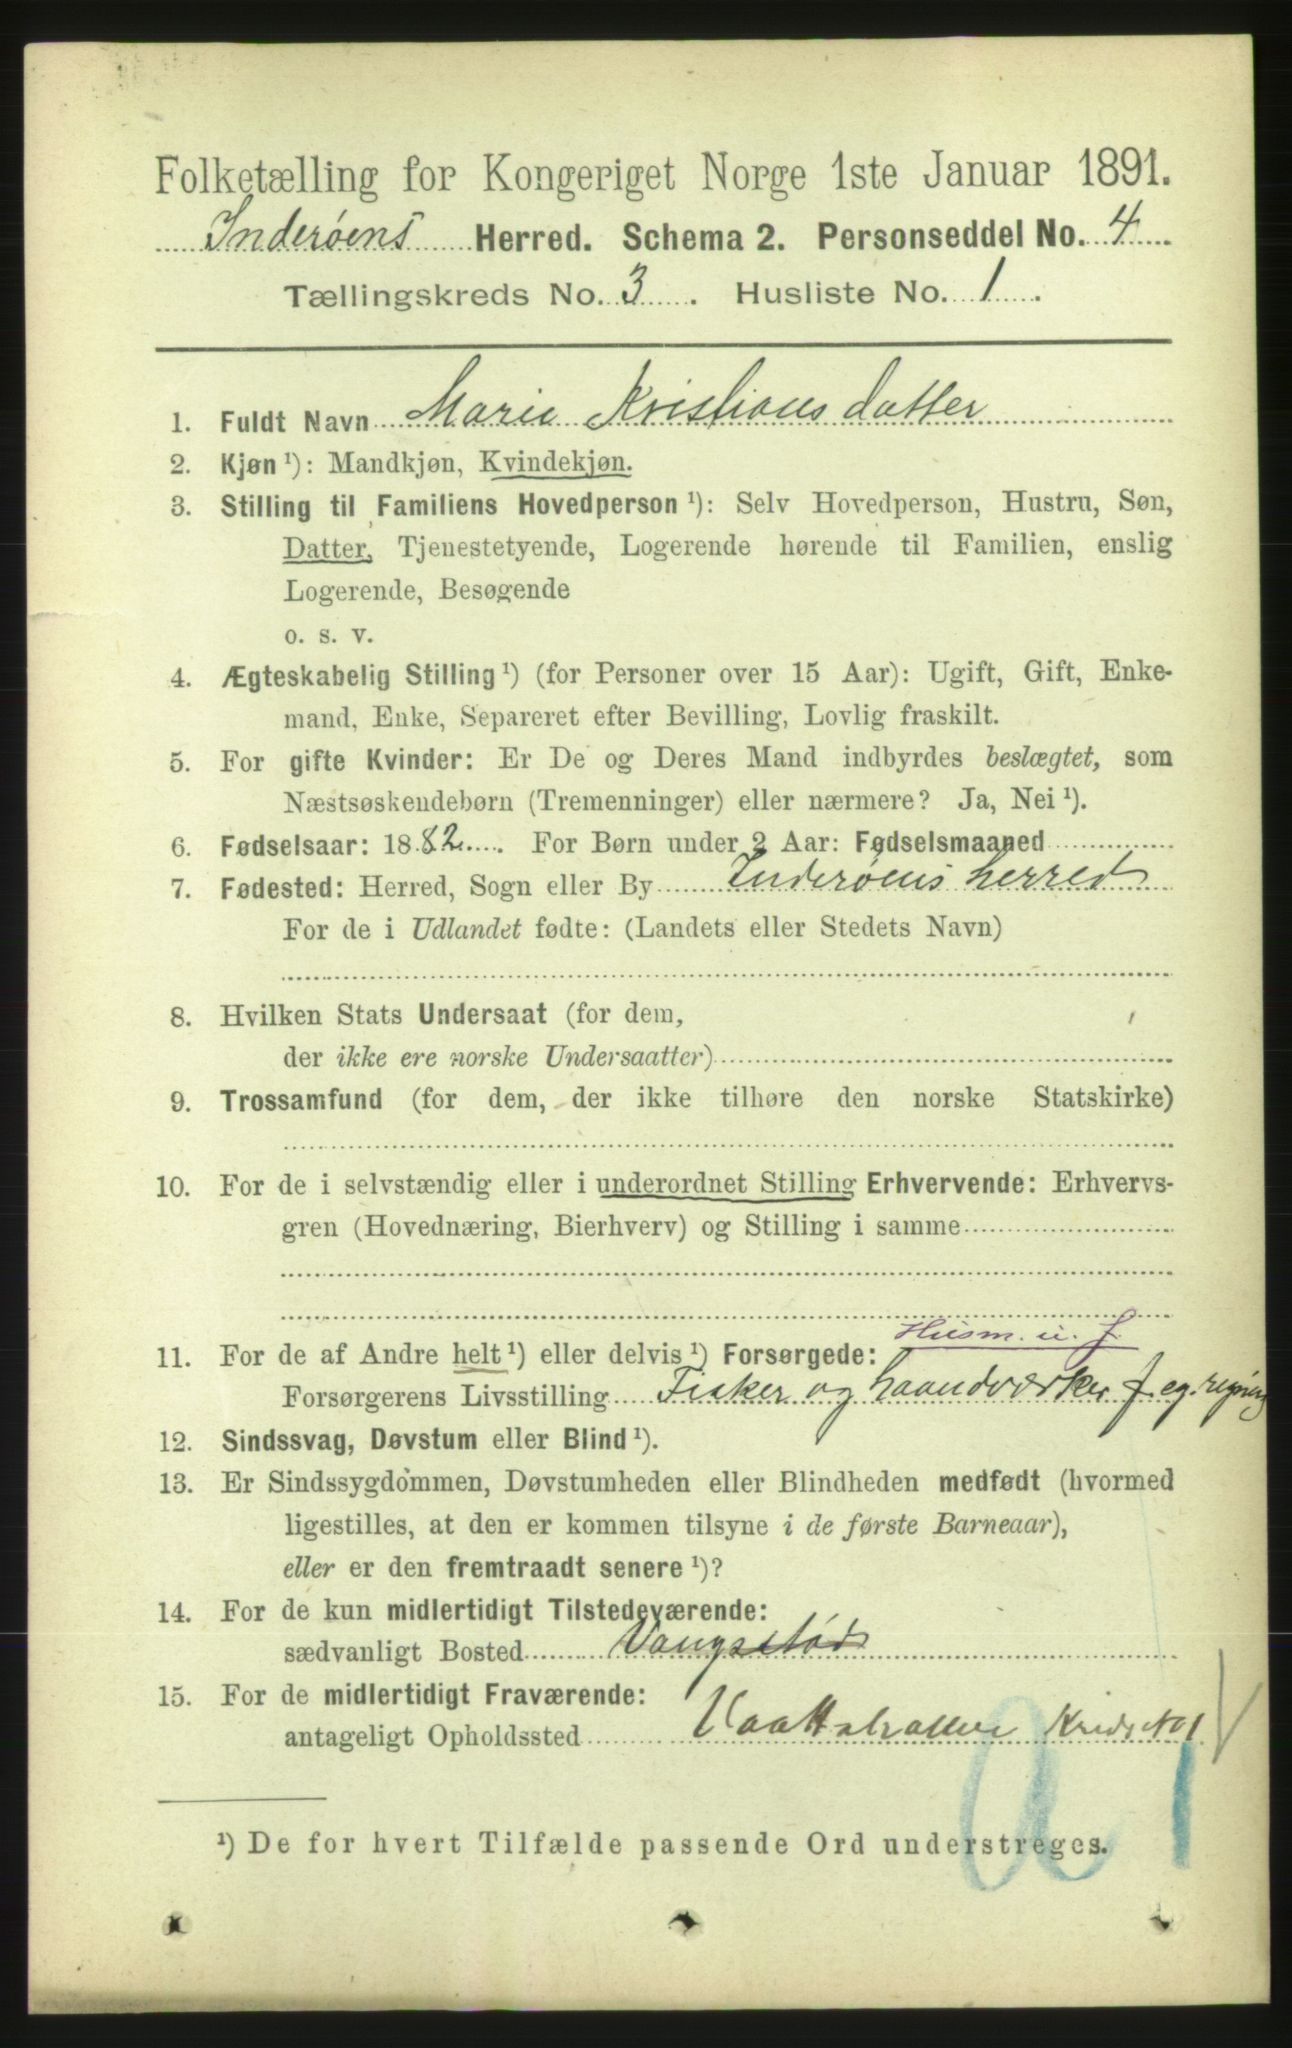 Folketælling for Kongeriget Norge 1ste Januar 1891.
Inderøens Herred. Schema 2. Personseddel No. 4
Tællingskreds No. 3. Husliste No. 1.
1. Fuldt Navn Marie Kristians datter
2. Kjøn ¹): Mandkjøn, Kvindekjøn.
3. Stilling til Familiens Hovedperson ¹): Selv Hovedperson, Hustru, Søn,
Datter, Tjenestetyende, Logerende hørende til Familien, enslig
Logerende, Besøgende
o. s. v.
4. Ægteskabelig Stilling ¹) (for Personer over 15 Aar): Ugift, Gift, Enke-
mand, Enke, Separeret efter Bevilling, Lovlig fraskilt.
5. For gifte Kvinder: Er De og Deres Mand indbyrdes beslægtet, som
Næstsøskendebørn (Tremenninger) eller nærmere? Ja, Nei ¹).
6. Fødselsaar: 1882. For Børn under 2 Aar: Fødselsmaaned
7. Fødested: Herred, Sogn eller By Inderøens herred
For de i Udlandet fødte: (Landets eller Stedets Navn)
8. Hvilken Stats Undersaat (for dem,
der ikke ere norske Undersaatter)
9. Trossamfund (for dem, der ikke tilhøre den norske Statskirke)
10. For de i selvstændig eller i underordnet Stilling Erhvervende: Erhvervs-
gren (Hovednæring, Bierhverv) og Stilling i samme
Husm. u. J.
11. For de af Andre helt ¹) eller delvis ¹) Forsørgede:
Forsørgerens Livsstilling Fisker og haandværker f. eg. regning
12. Sindssvag, Døvstum eller Blind ¹).
13. Er Sindssygdommen, Døvstumheden eller Blindheden medfødt (hvormed
ligestilles, at den er kommen tilsyne i de første Barneaar),
eller er den fremtraadt senere ¹)?
14. For de kun midlertidigt Tilstedeværende:
sædvanligt Bosted
15. For de midlertidigt Fraværende:
antageligt Opholdssted
¹) De for hvert Tilfælde passende Ord understreges.